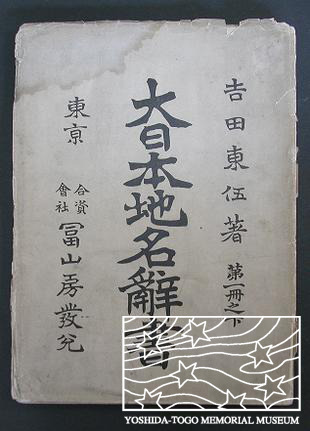 吉田東伍著 第一冊之下
大日本地名辭書
東京 合資會社 冨山房發兌
YOSHIDA-TOGO MEMORIAL MUSEUM